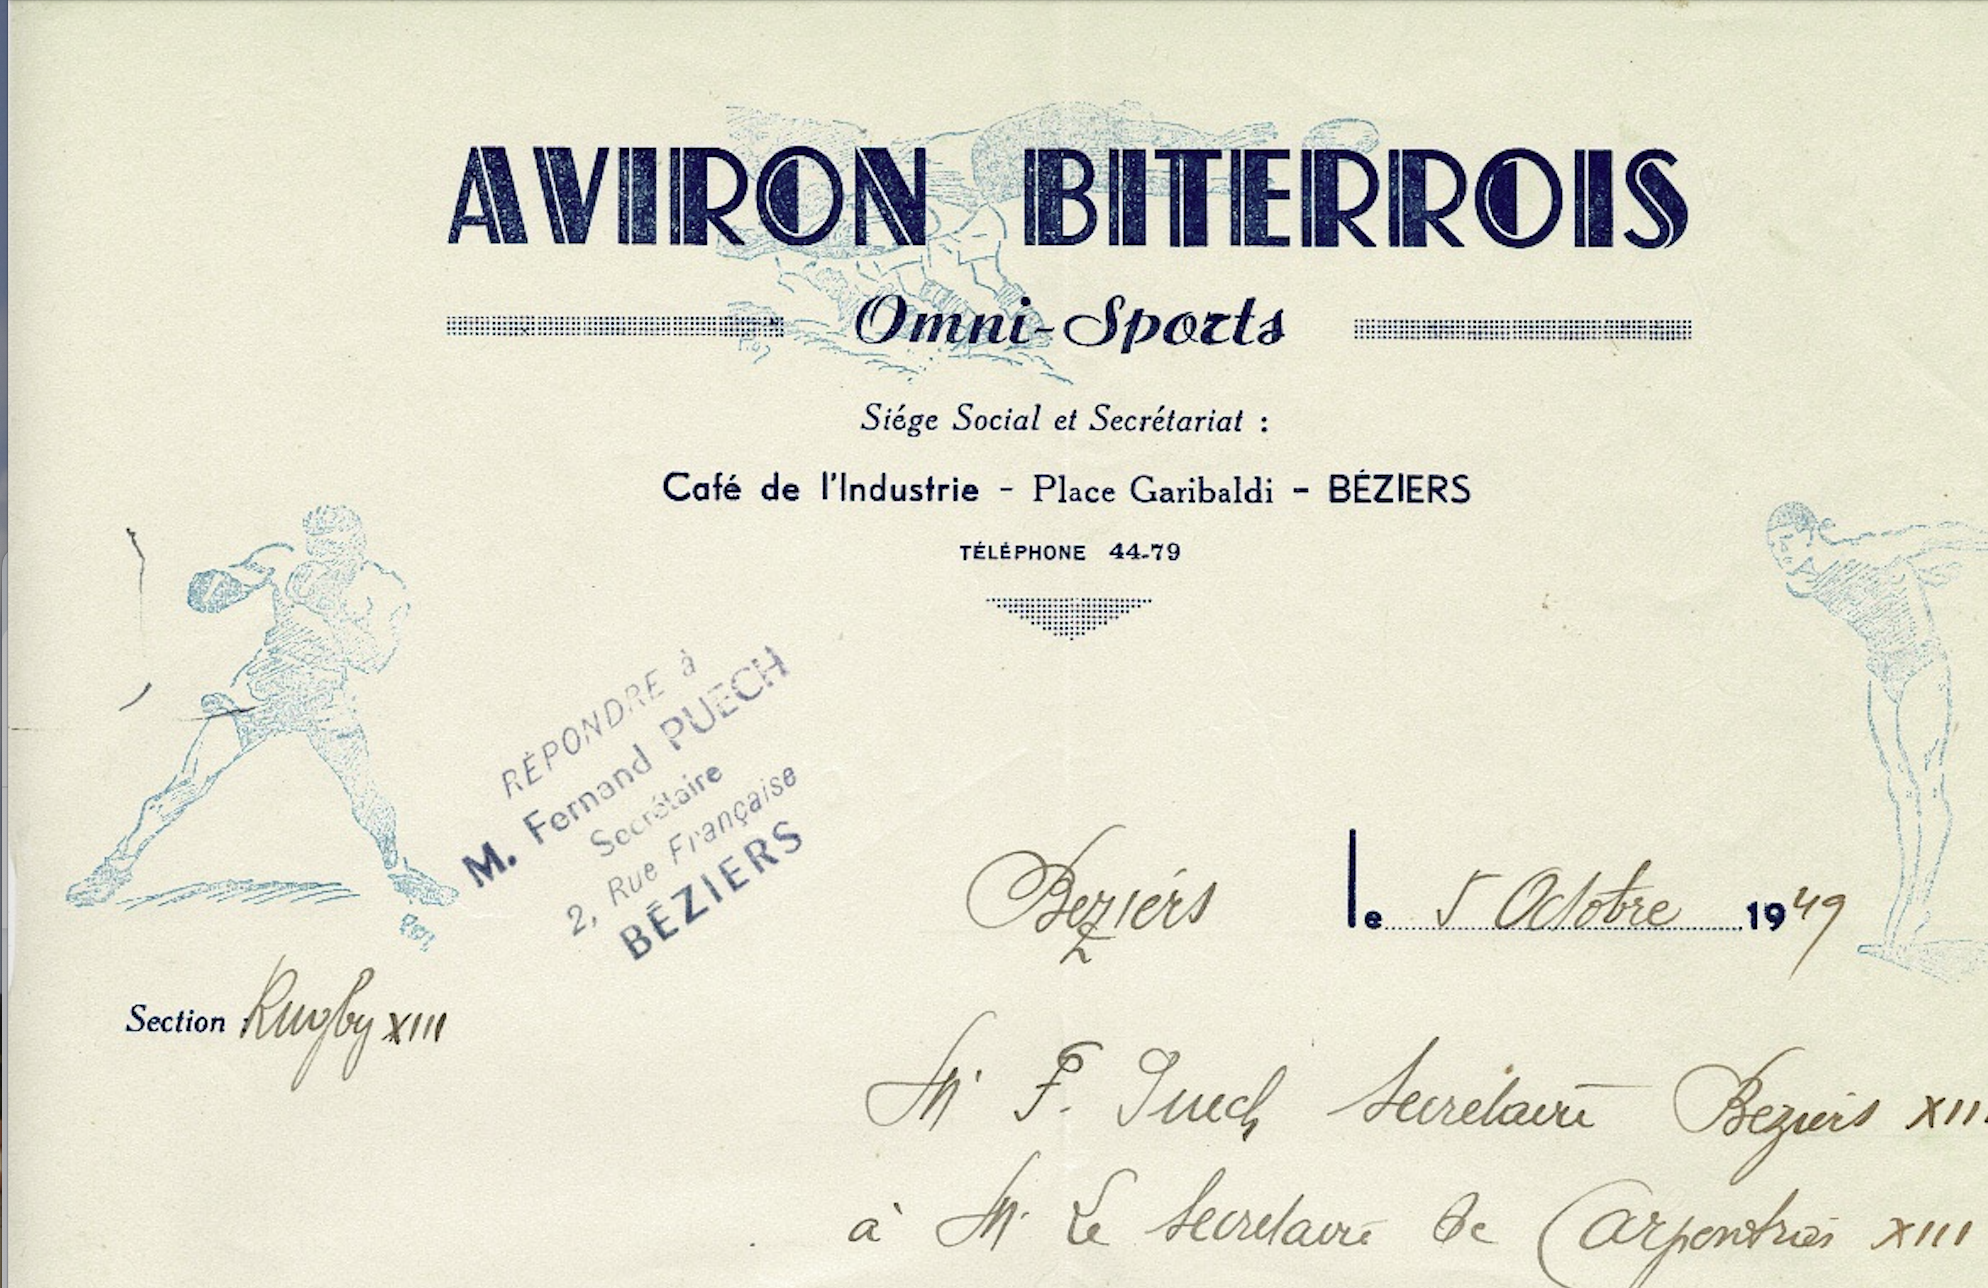 AVIRON BITERROIS
Omni-Sports
Siége Social et Secrétariat :
Café de l'Industrie - Place Garibaldi - BÉZIERS
TÉLÉPHONE 44-79
RÉPONDRE à
M. Fernand PUECH
Secrétaire
2, Rue Française
BÉZIERS
Béziérs le 5 Octobre 1949
Section : Rugby XIII
Mr F. Puech Secrétaire Beziers XIII
à Mr Le Secretaire de Carpentras XIII